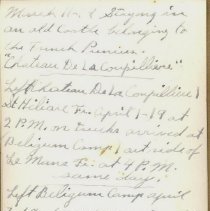 March No. 1 Staying in
an old Castle belonging to
the French Princess.
"Chateau De La Coupilliere."
Left Chateau De La Coupilliere
St Hiliare Fr. April 1-19 at
2 P.M. on trucks arrived at
Beligium Camp outside of
Le Mans Fr. at 4 P.M.
same day.
Left Beligium Camp april